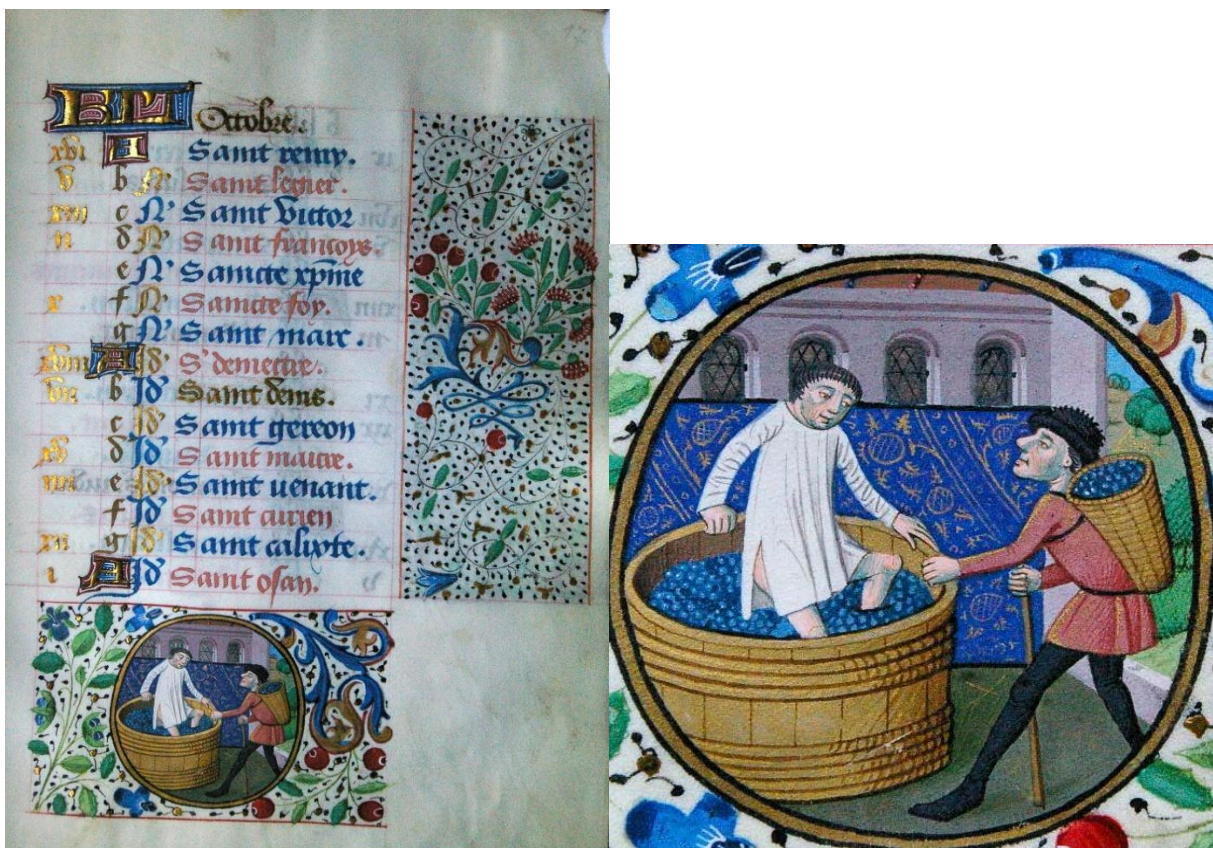 17
KL Octobre.
xvi A Saint remy.
v b N' Saint legier.
xiii c N' Saint victor
ii d N' Saint francoys.
e N' Saincte xp̄ine
x f N' Saincte foy.
g N' Saint marc.
xviii A Id' S' demettre.
vii b Id' Saint denis.
c Id' Saint gereon
xv d Id' Saint
iiii e Id' Saint venant.
f Id' Saint aurien
xii g Id' Saint calixte.
i A Id' Saint osan.